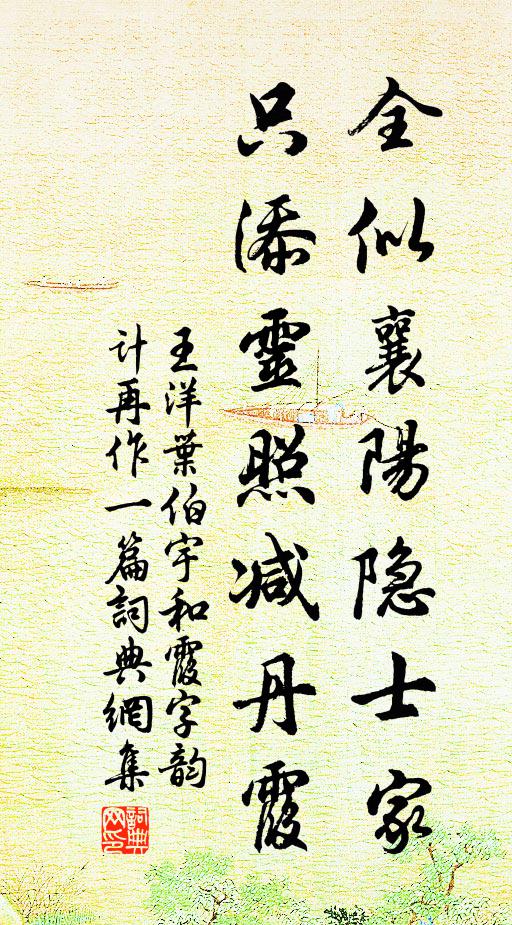 全似襄陽隐士家
只添靈照减丹霞
王洋葉伯宇和霞字韵
计再作一篇詞典網集
詞典
网印